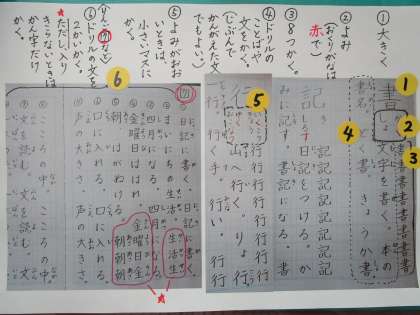 ①大きく
②よみ
(おくりがなは
赤で)
③8つかく。
④ドリルの
ことばや
文をかく。
(じぶんで
かんがえた文
でもよい。)
⑤よみがおお
いときは、
小さいマスに
かく。
⑥ドリルの文を
2かいかく。
★ただし、入り
きらないときは
かん字だけ
かく。
1
2
3
4
5
6
書
しょ
文字を書く。本の
書名。
どく書。きょうか書
記
しるす
記記記記記記記
日記をつける。
みに記す。書記になる。
行
行行行行行行行
山へ行く。りょ行
⑰
日記に書く。日記に書く。
まちの生活。生活生
四月になる。四月になる。
金曜日ははれ。金曜日
朝がはねける。朝朝朝
口に入れる。口に入れる。
声の大きさ。声の大きさ。
こころの中。こころの中。
文を読む。文を読む。